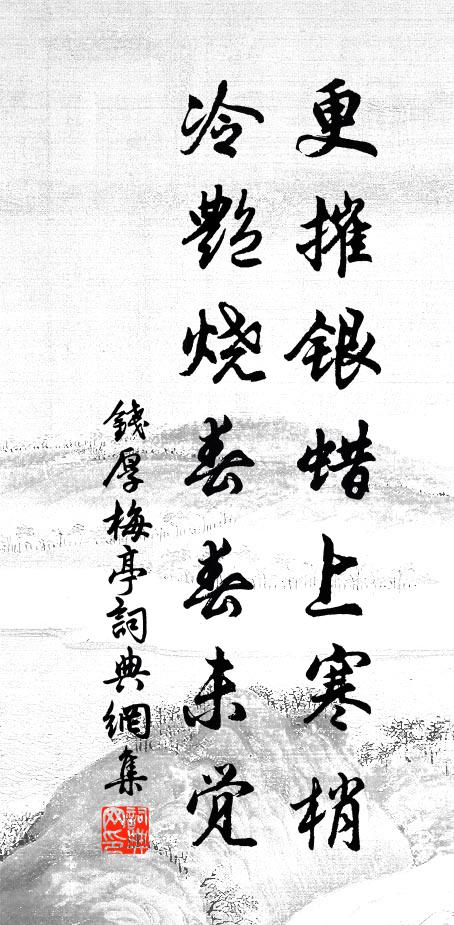 更摧银蜡上寒梢
冷艷烧春春未觉
錢厚梅亭詞典網集